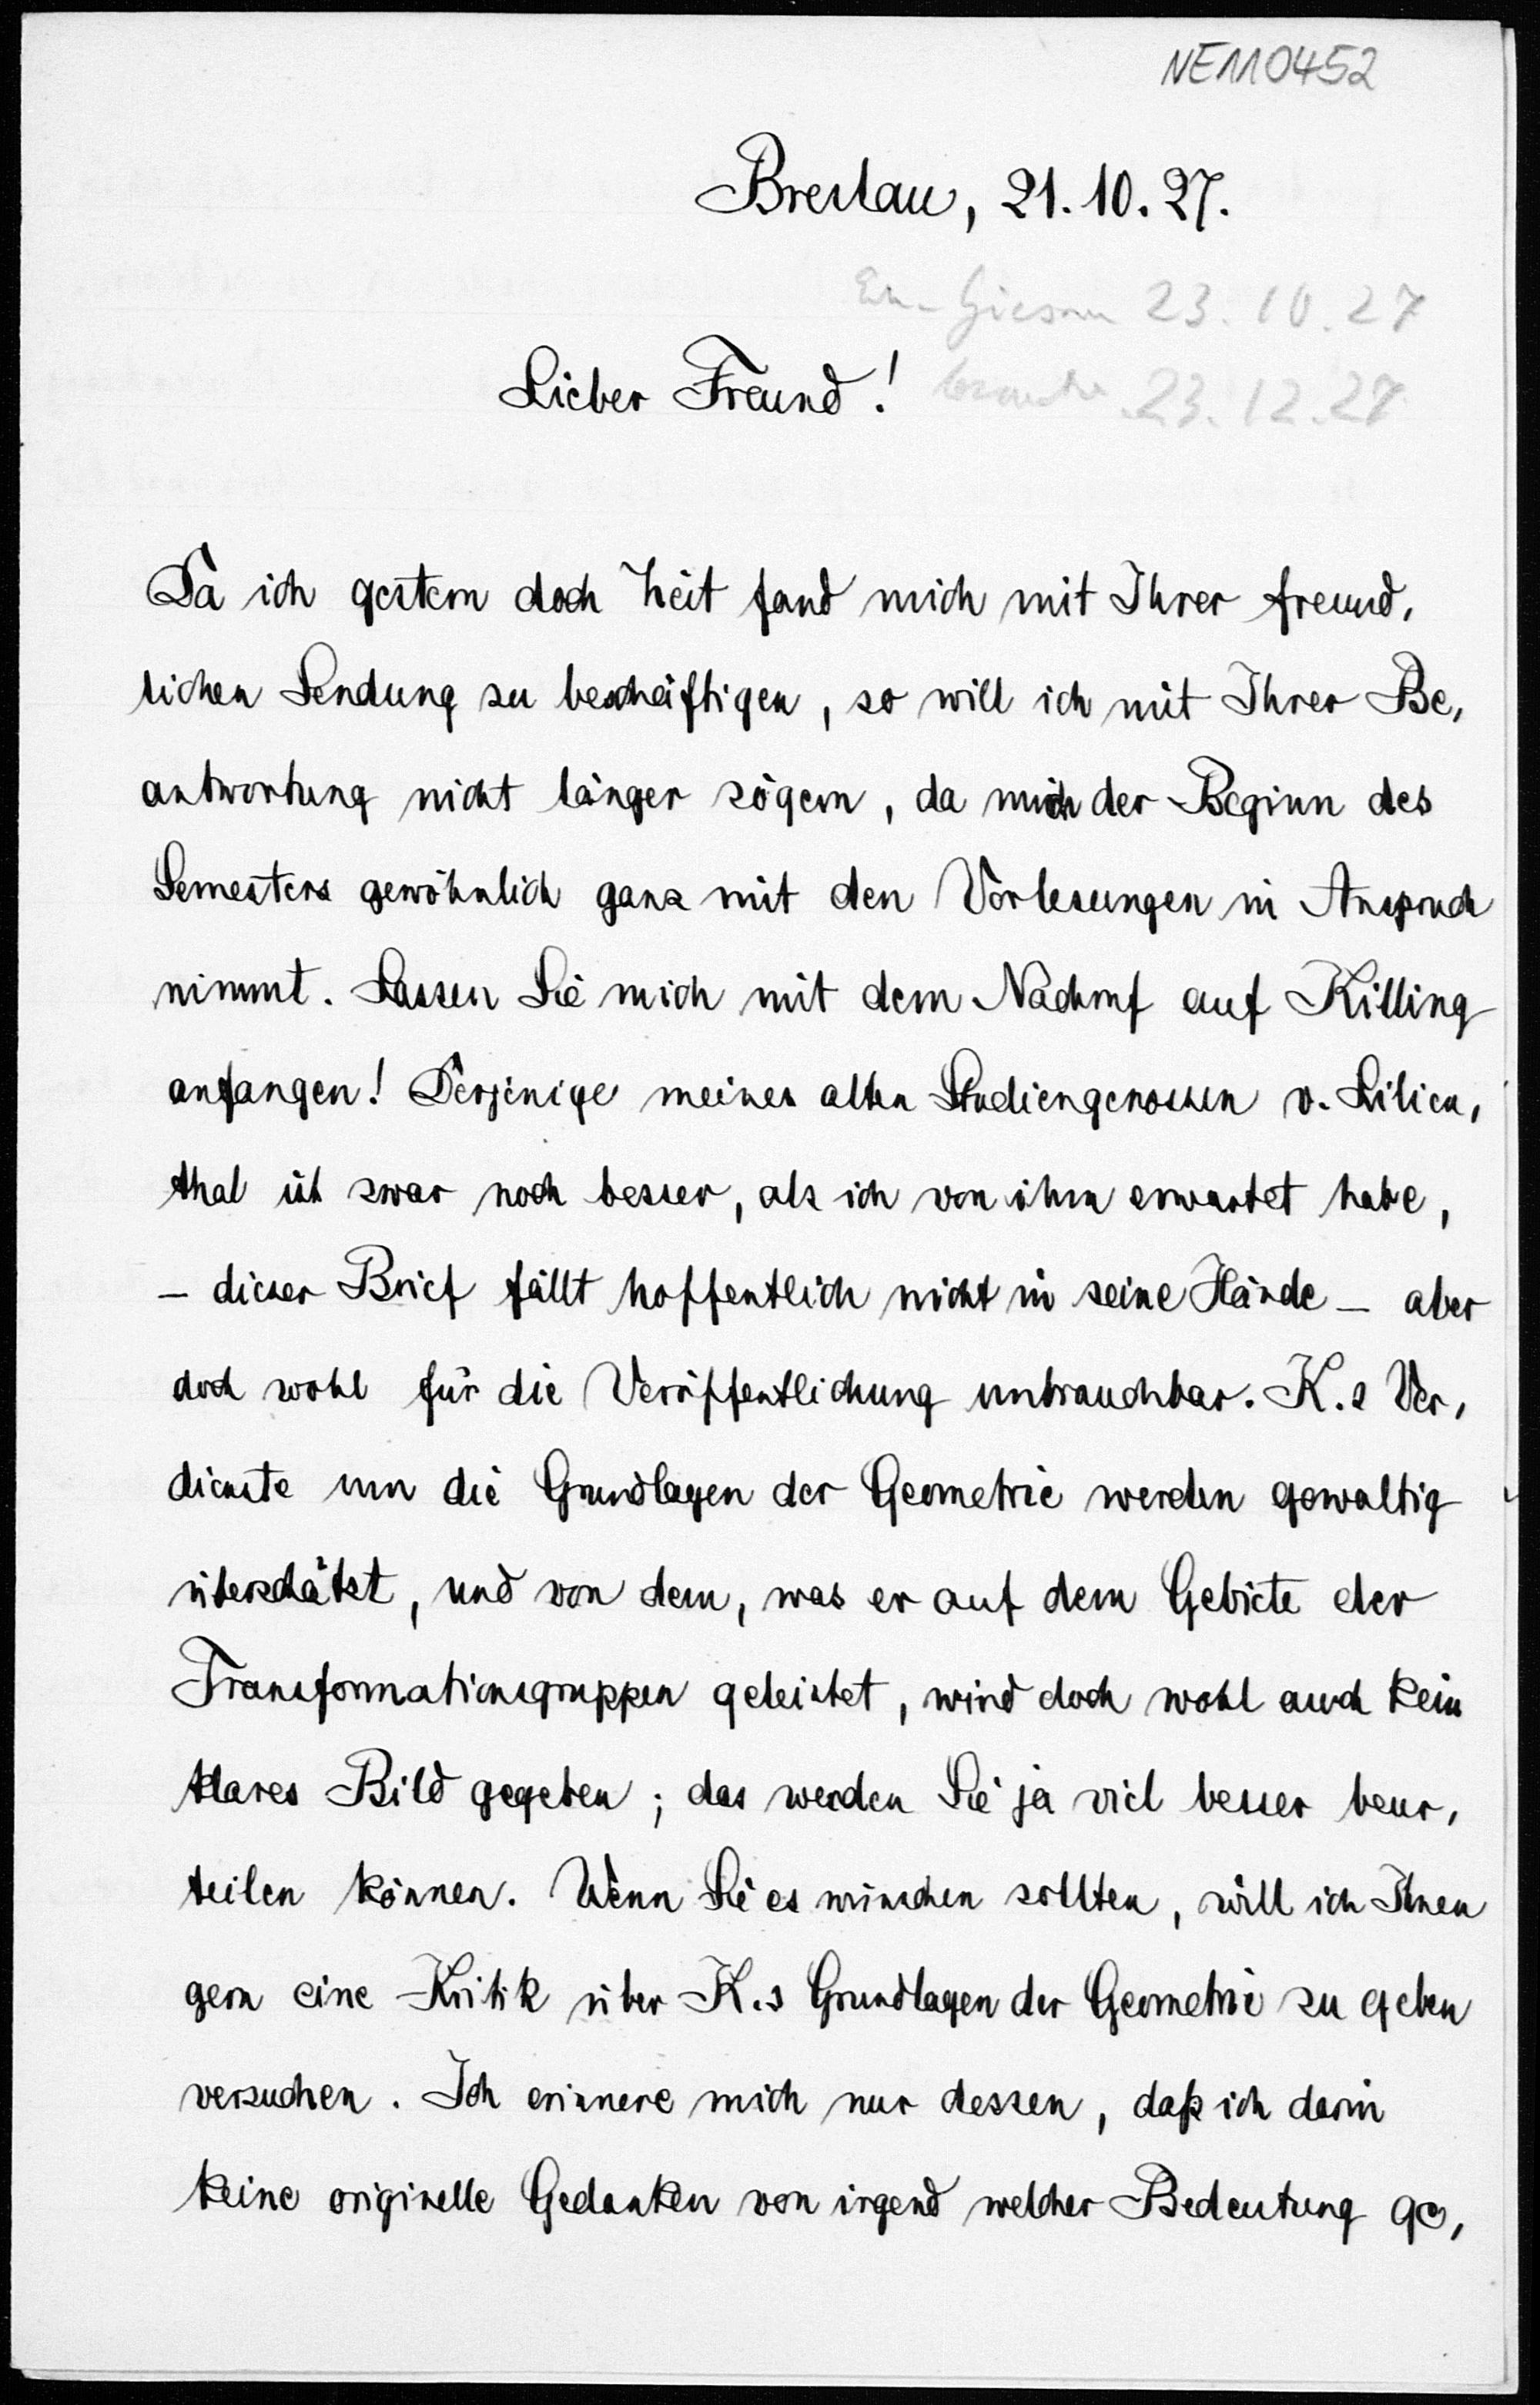 NE110452
Breslau, 21. 10. 27.
Giessen 23. 10. 27
Lieber Freund!
23. 12. 27
Da ich gestern doch Zeit fand mich mit Ihrer freund,
lichen Sendung zu beschäftigen, so will ich mit Ihrer Be,
antwortung nicht länger zögern, da mich der Beginn des
Semesters gewöhnlich ganz mit den Vorlesungen in Anspruch
nimmt. Lassen Sie mich mit dem Nachruf auf Killing
anfangen! Derjenige meines alten Studiengenossen v. Lilien,
thal ist zwar noch besser, als ich von ihm erwartet habe,
– dieser Brief fällt hoffentlich nicht in seine Hände – aber
doch wohl für die Veröffentlichung unbrauchbar. K.s Ver,
dienste um die Grundlagen der Geometrie werden gewaltig
überschätzt, und von dem, was er auf dem Gebiete der
Transformationsgruppen geleistet, wird doch wohl auch kein
klares Bild gegeben; das werden Sie ja viel besser beur,
teilen können. Wenn Sie es wünschen sollten, will ich Ihnen
gern eine Kritik über K.s Grundlagen der Geometrie zu geben
versuchen. Ich erinnere mich nur dessen, daß ich darin
keine originelle Gedanken von irgend welcher Bedeutung ge,